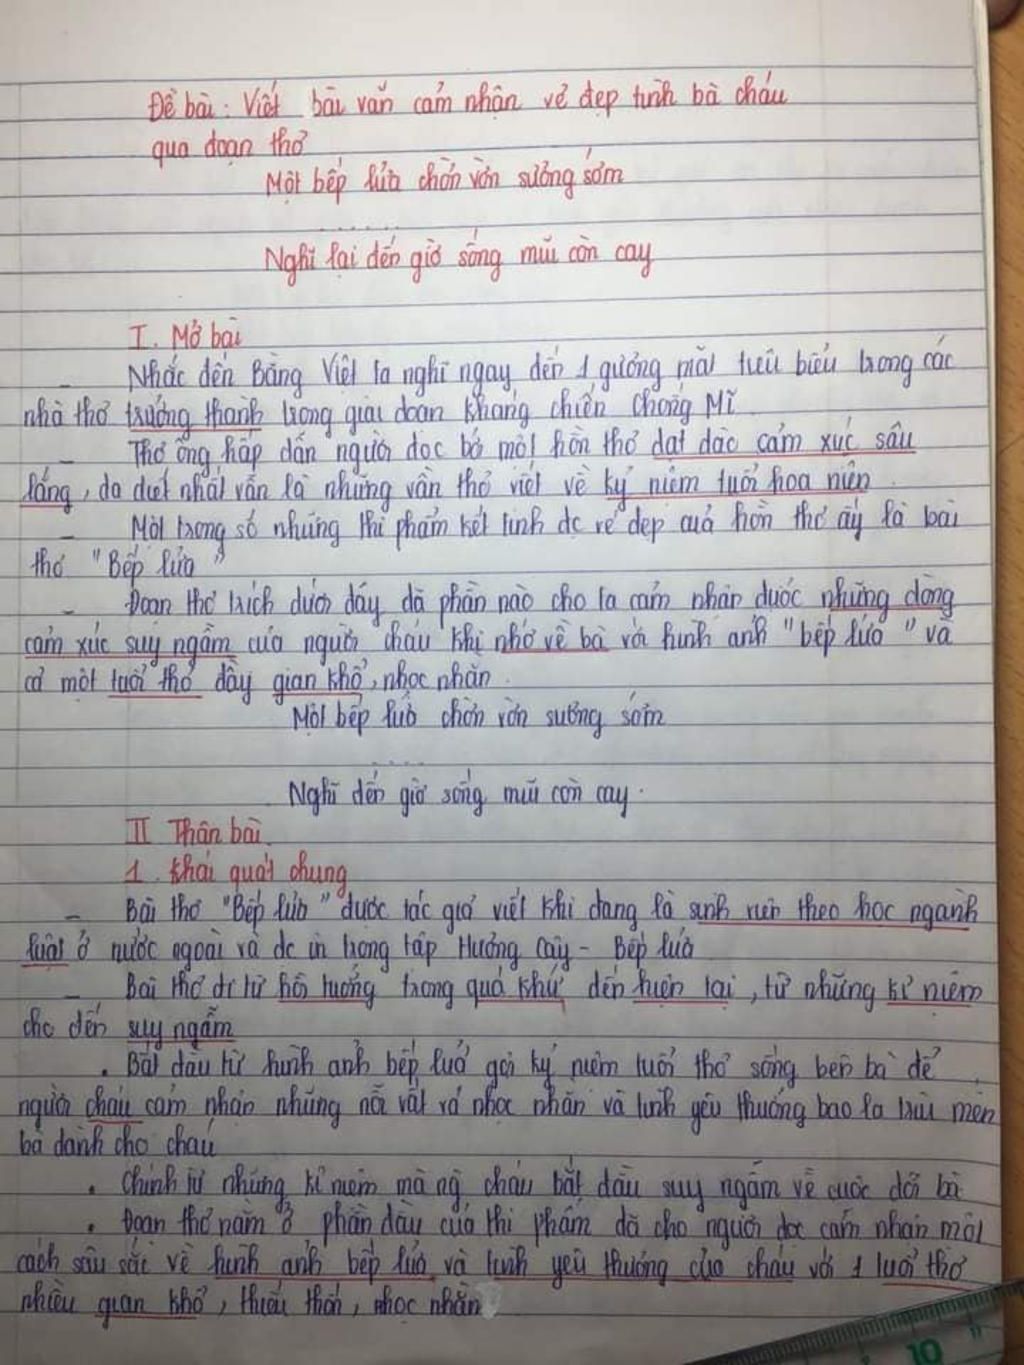 Đề bài: Viết bài văn cảm nhận vẻ đẹp tình bà cháu
qua đoạn thơ
Một bếp lửa chờn vờn sương sớm
......
Nghĩ lại đến giờ sống mũi còn cay
I. Mở bài
- Nhắc đến Bằng Việt ta nghĩ ngay đến 1 gương mặt tiêu biểu trong các
nhà thơ trưởng thành trong giai đoạn kháng chiến chống Mĩ
- Thơ ông hấp dẫn người đọc bở một hồn thơ dạt dào cảm xúc sâu
lắng, da diết nhất vẫn là những vần thơ viết về ký niệm tuổi hoa niên.
- Một trong số những thi phẩm kết tinh đc vẻ đẹp của hồn thơ ấy là bài
thơ "Bếp lửa"
- Đoạn thơ trích dưới đây đã phần nào cho ta cảm nhận được những dòng
cảm xúc suy ngẫm của người cháu khi nhớ về bà với hình ảnh "bếp lửa" và
cả một tuổi thơ đầy gian khổ, nhọc nhằn.
Một bếp lửa chờn vờn sương sớm
....
Nghĩ đến giờ sống mũi còn cay.
II Thân bài.
1. Khái quát chung
- Bài thơ "Bếp lửa" được tác giả viết khi đang là sinh viên theo học ngành
luật ở nước ngoài và đc in trong tập Hương cây - Bếp lửa
- Bài thơ đi từ hồi tưởng trong quá khứ đến hiện tại, từ những kỉ niệm
cho đến suy ngẫm
. Bắt đầu từ hình ảnh bếp lửa gợi ký niệm tuổi thơ sống bên bà để
người cháu cảm nhận những nỗi vất vả nhọc nhằn và tình yêu thương bao la trìu mến
bà dành cho cháu
. Chính từ những kỉ niệm mà ng cháu bắt đầu suy ngẫm về cuộc đời bà
. Đoạn thơ nằm ở phần đầu của thi phẩm đã cho người đọc cảm nhận một
cách sâu sắc về hình ảnh bếp lửa và tình yêu thương của cháu với 1 tuổi thơ
nhiều gian khổ, thiếu thốn, nhọc nhằn
10